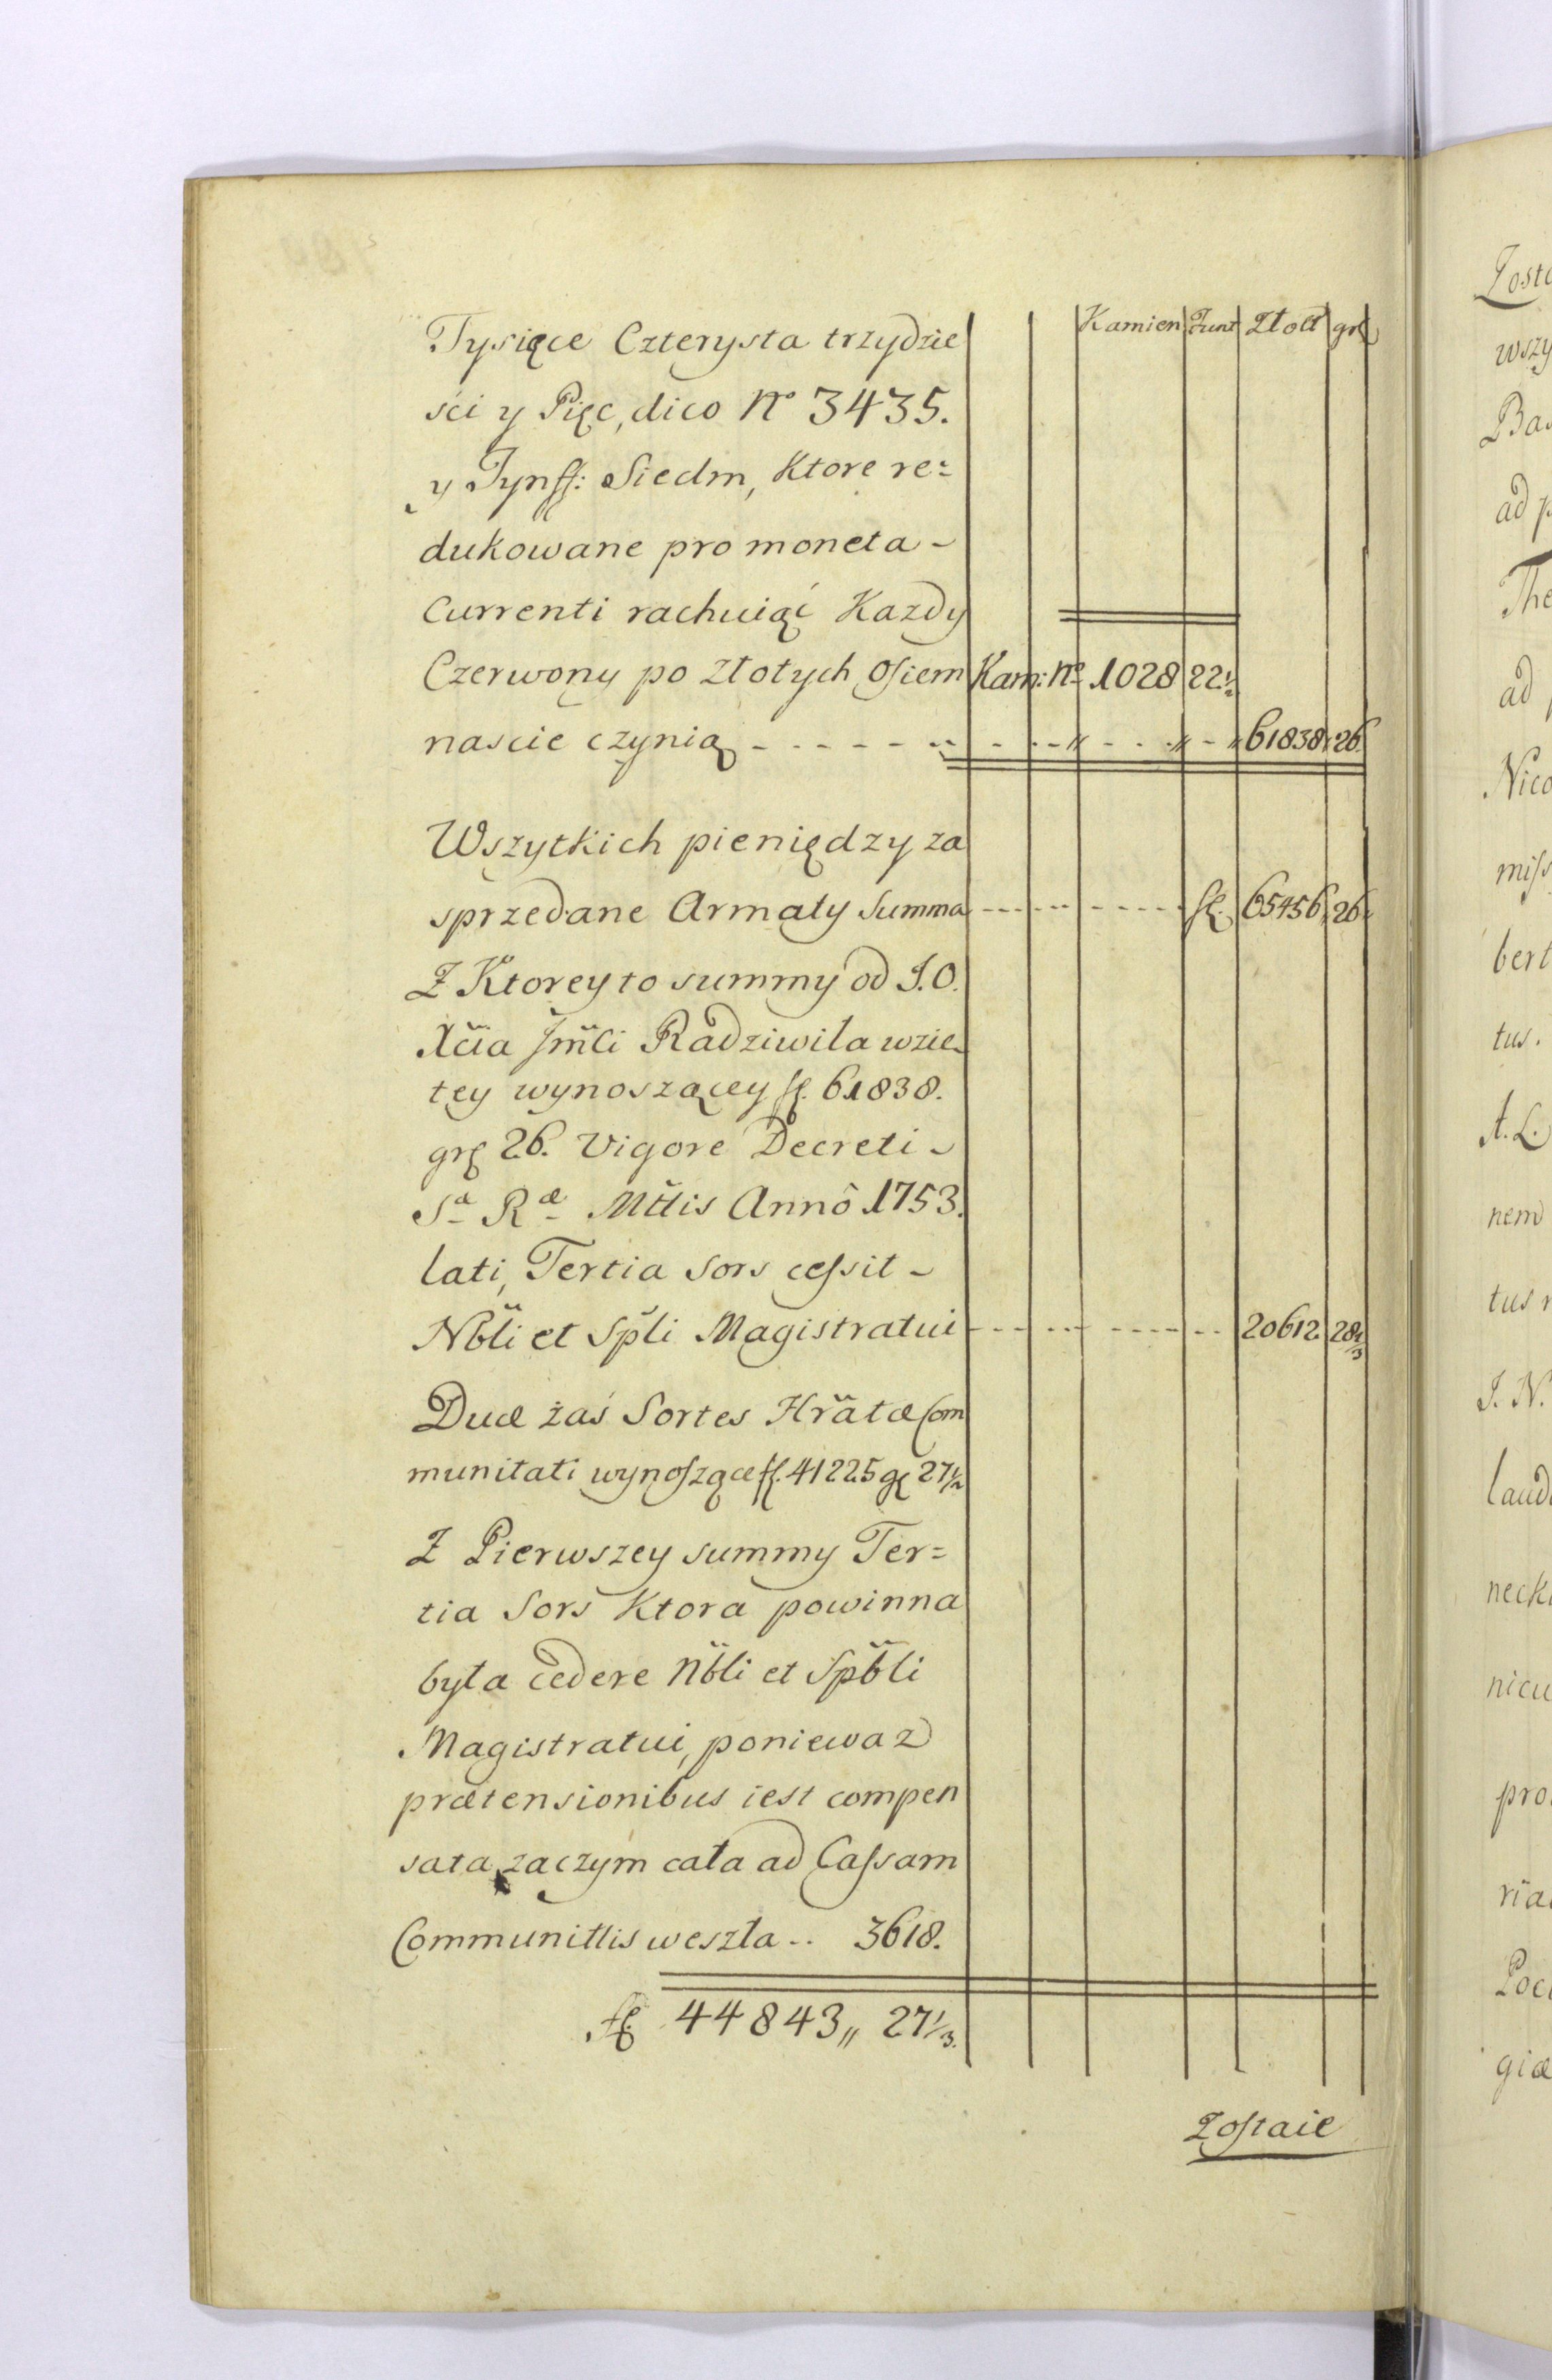 Kamien Funt Złott grſ
Tysięce Czterysta trzydzie
ści y Pięc, dico No 3435.
y Tynff: Siedm, Ktore re=
dukowane pro moneta -
Currenti rachuiąć Kazdy
Czerwony po Złotych oſiem Kam: No 1028 22½
nascie czynią - - - - - - - - - - - 61838 26.
Wszytkich pieniędzy za
sprzedane Armaty Summa - - - - - - fl. 65456 26
Z Ktorey to summy od J.O.
Xcia Jmci Radziwiła wzie-
tey wynoszącey fl. 61838.
grſ 26. Vigore Decreti -
Sæ Ræ Mttis Annô 1753.
lati, Tertia Sors ceſsit -
Nbli et Spli Magistratui - - - - - - 20612 28⅔
Duæ żaś Sortes Hrãtæ Com
munitati wynoſzące fl. 41225 gſ 27½
Z Pierwszey summy Ter=
tia Sors Ktora powinna
była cedere Nbli et Spbli
Magistratui, poniewaz
prætensionibus iest compen
sata, zaczym cała ad Caſsam
Communittis weszła .. 3618.
fl. 44843,, 27⅓.
Zoſtaie